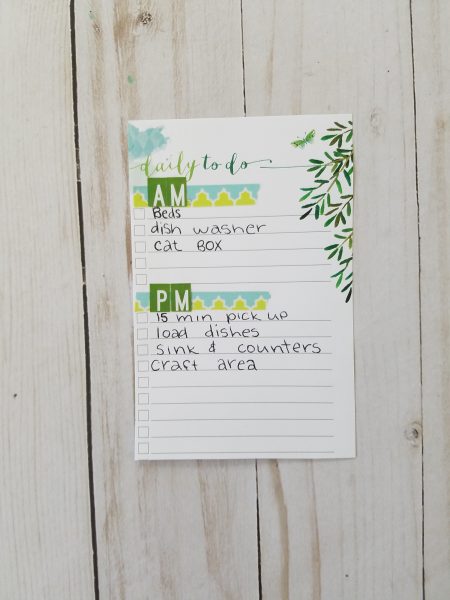 daily to do
AM
Beds
dish washer
cat BOX
PM
15 min pick up
load dishes
sink & counters
craft area